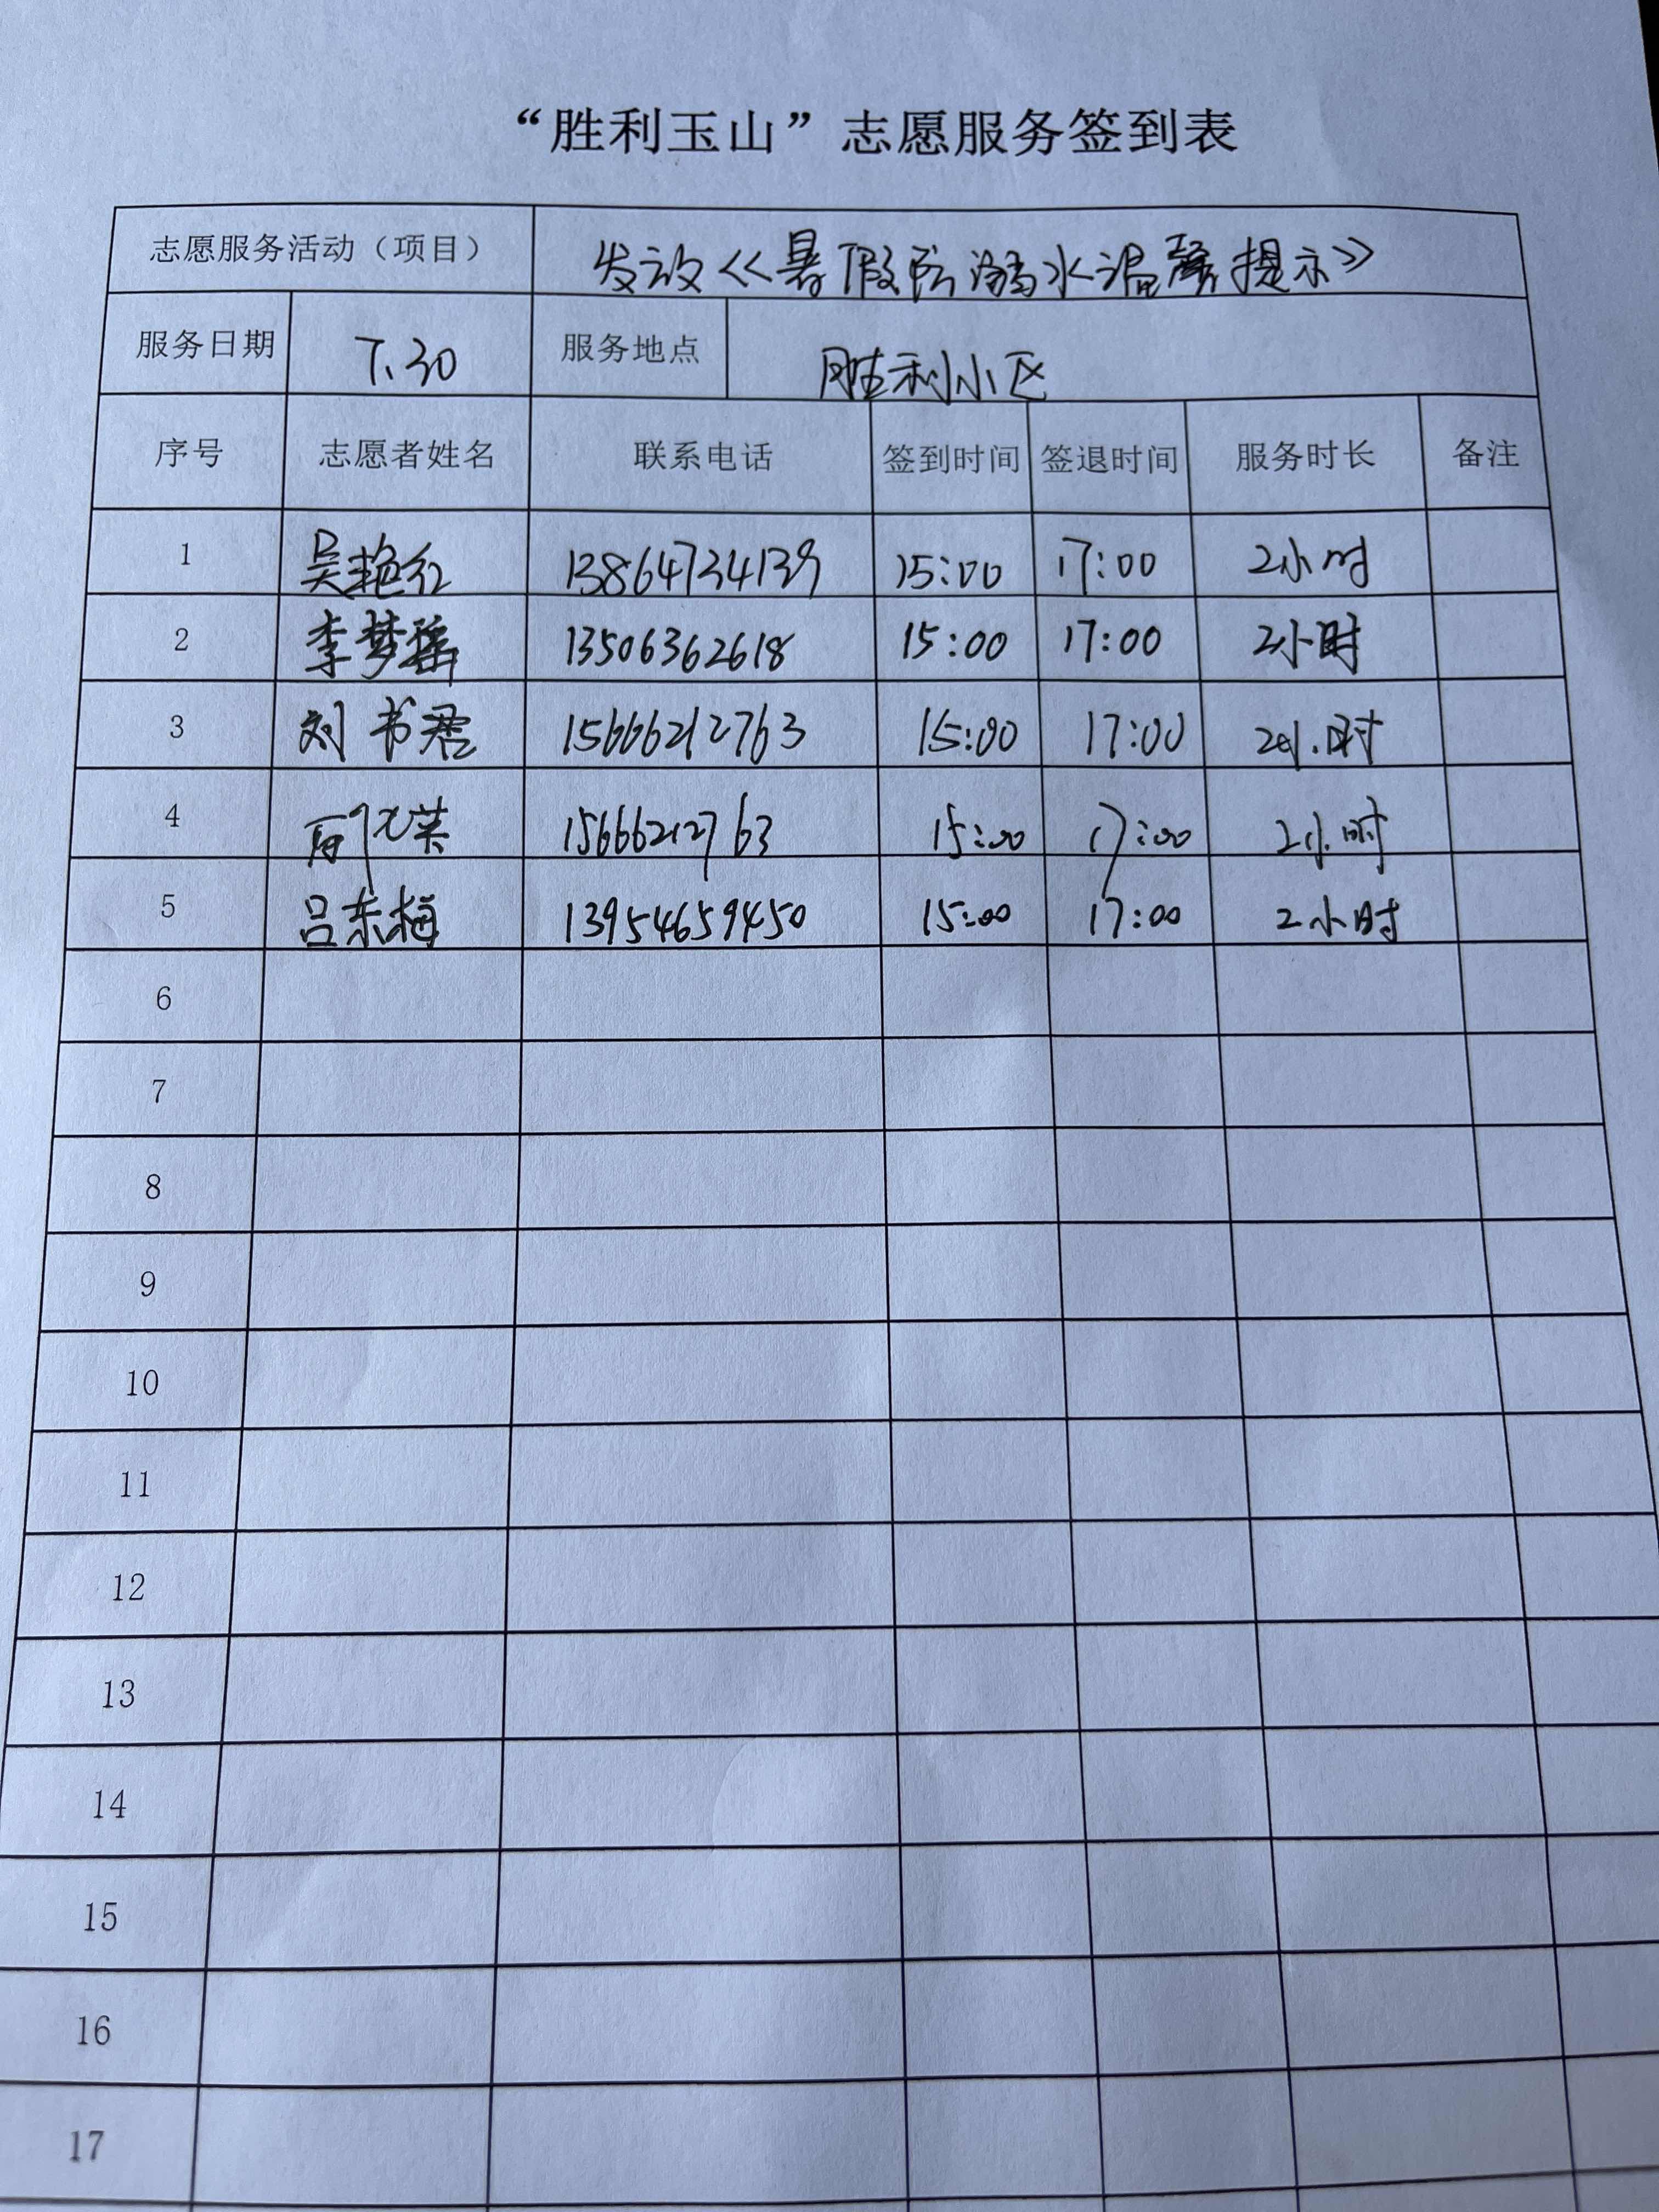 “胜利玉山”志愿服务签到表
志愿服务活动（项目） 发放《暑假防溺水温馨提示》
服务日期 7.30 服务地点 胜利小区
序号 志愿者姓名 联系电话 签到时间 签退时间 服务时长 备注
1 吴艳红 13864734139 15:00 17:00 2小时
2 李梦瑶 13506362618 15:00 17:00 2小时
3 刘书君 15666212763 15:00 17:00 2小时
4 15666212763 15:00 17:00 2小时
5 吕东梅 13954659450 15:00 17:00 2小时
6
7
8
9
10
11
12
13
14
15
16
17